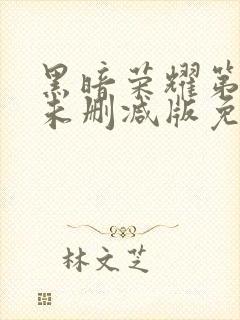 黑暗荣耀第
未删减版免
林文芝